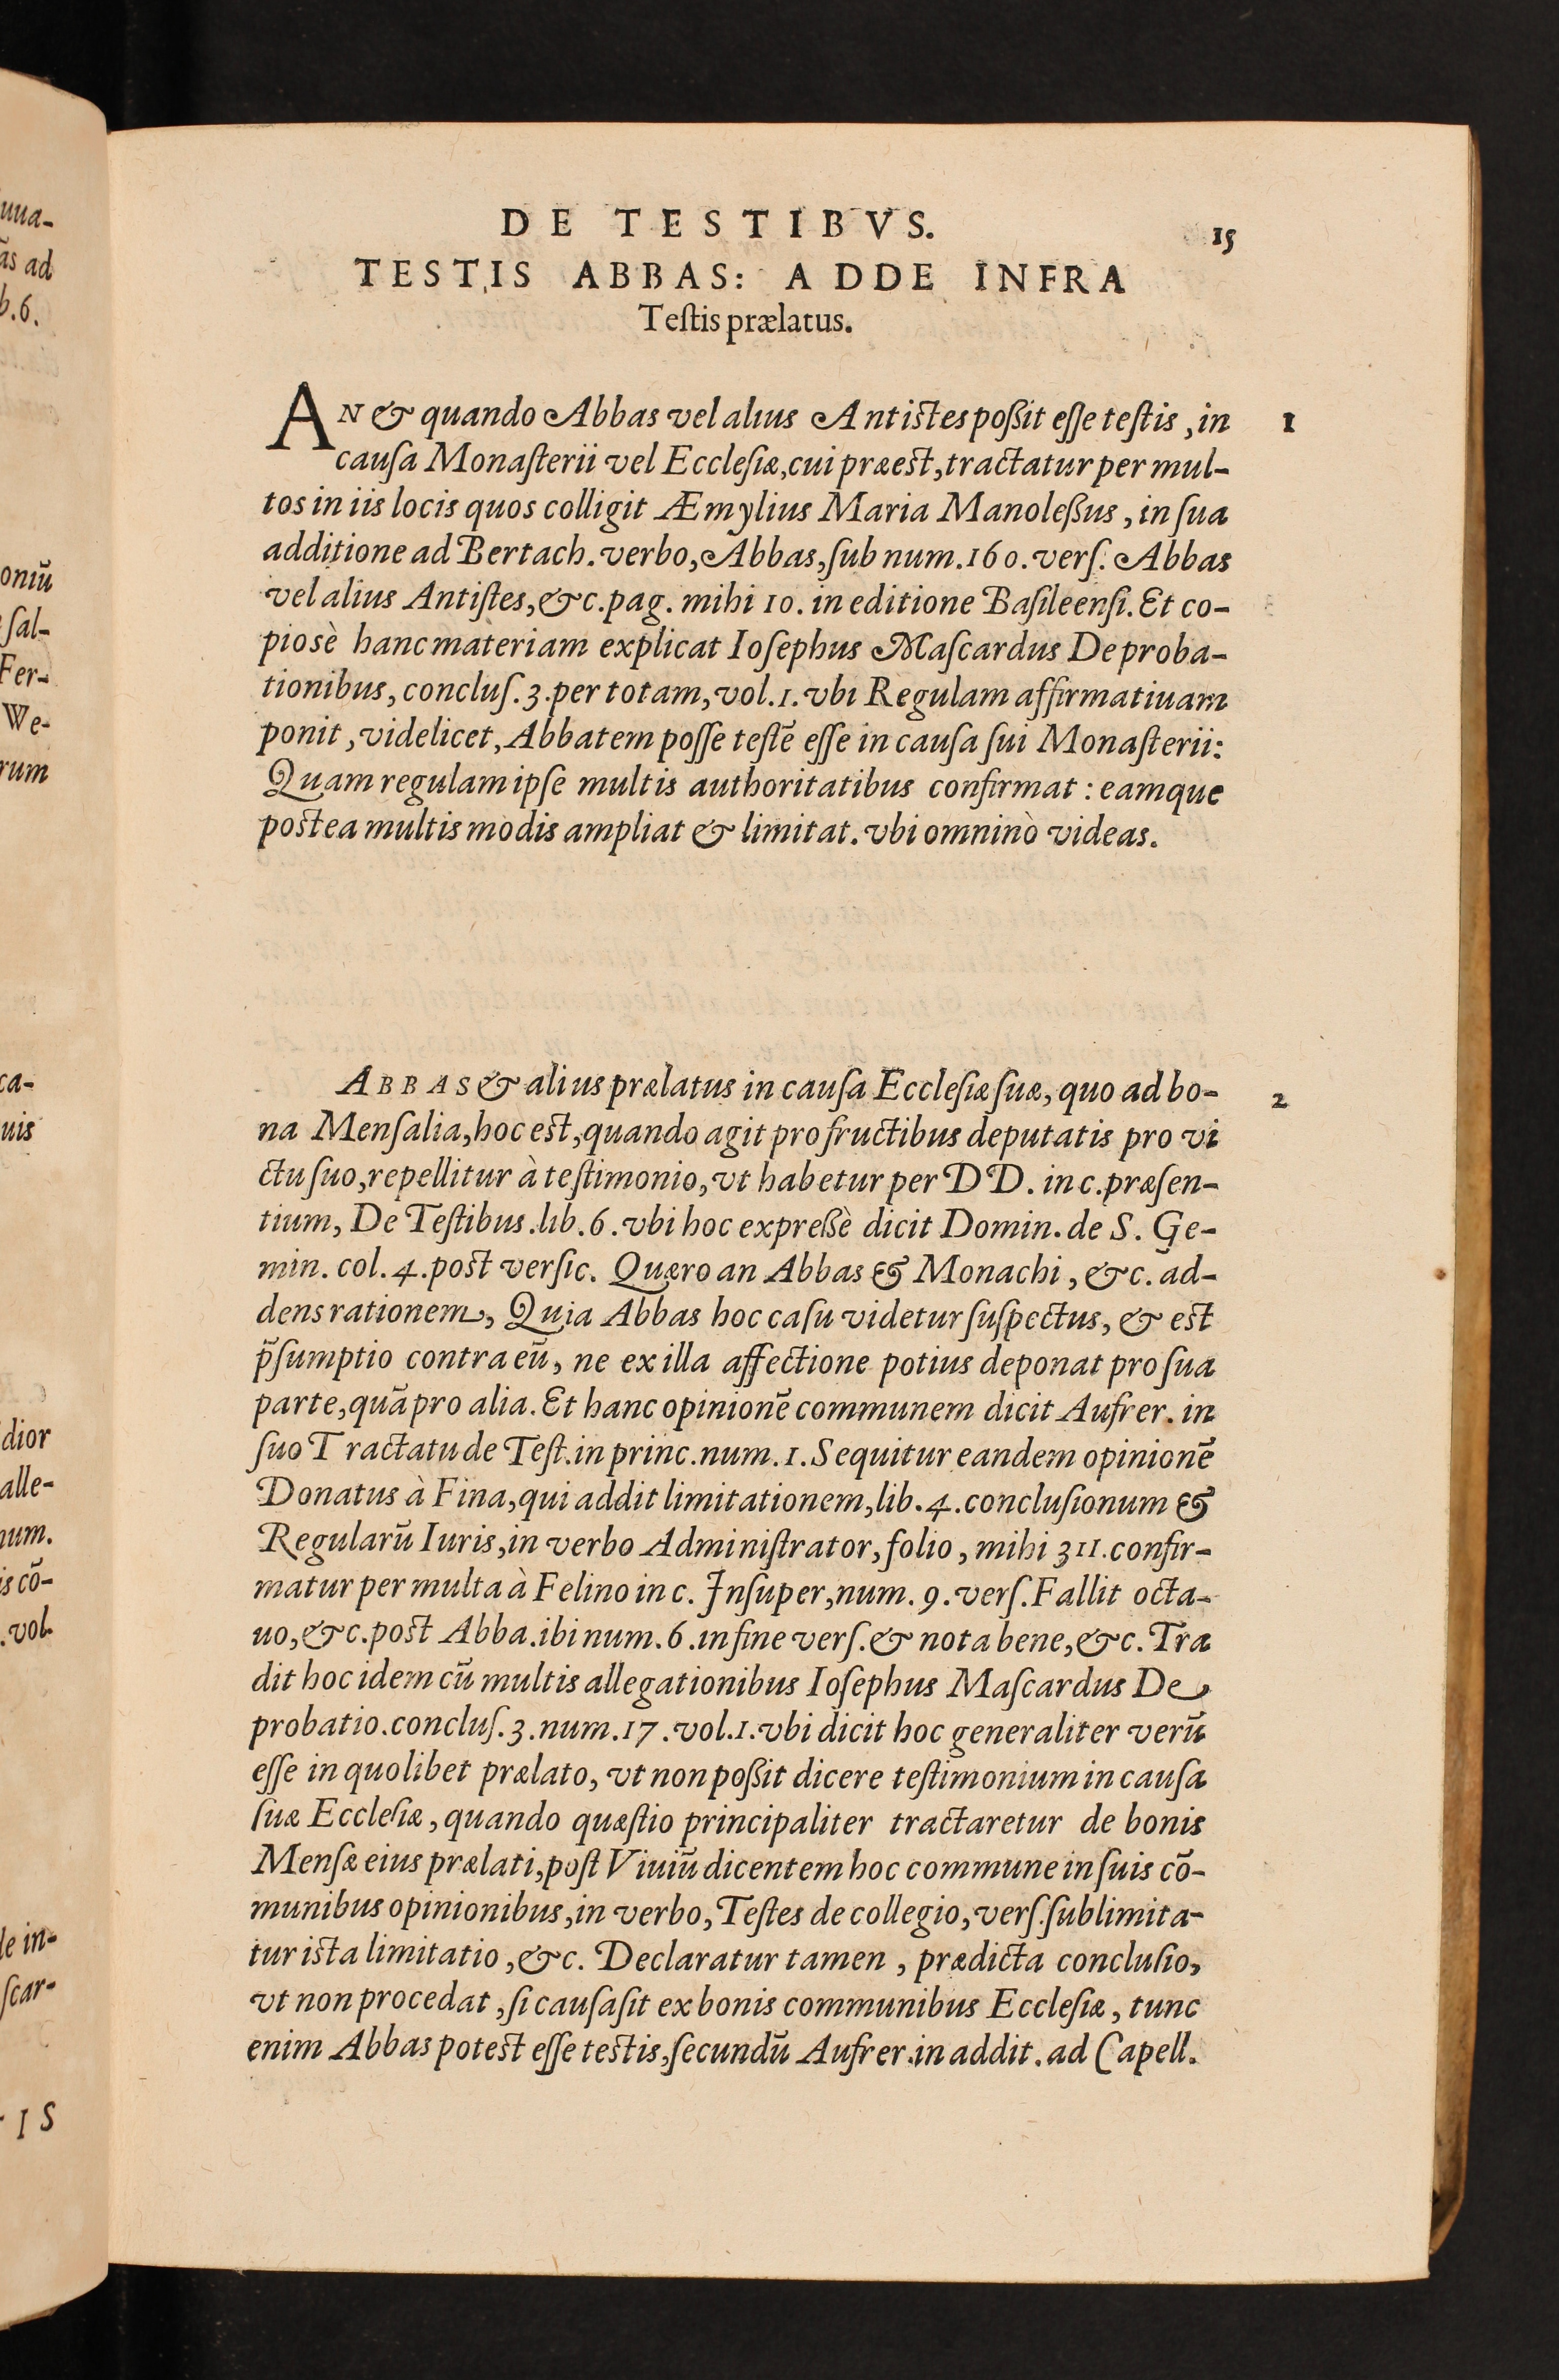 DE TESTIBVS.
15
TESTIS ABBAS: ADDE INFRA
Teſtis prælatus.
AN & quando Abbas vel alius Antiſtes poßit eſſe teſtis, in
1
cauſa Monaſterii vel Eccleſiæ, cui præeſt, tractatur per mul-
tos in iis locis quos colligit Æmylius Maria Manoleßus, in ſua
additione ad Bertach. verbo, Abbas, ſub num. 160. verſ. Abbas
vel alius Antiſtes, &c. pag. mihi 10. in editione Baſileenſi. Et co-
piosè hanc materiam explicat Ioſephus Maſcardus De proba-
tionibus, concluſ. 3. per totam, vol. 1. vbi Regulam affirmatiuam
ponit, videlicet, Abbatem poſſe teſtē eſſe in cauſa ſui Monaſterii:
Quam regulam ipſe multis authoritatibus confirmat: eamque
poſtea multis modis ampliat & limitat. vbi omninò videas.
ABBAS & alius prælatus in cauſa Eccleſiæ ſuæ, quo ad bo-
2
na Menſalia, hoc eſt, quando agit pro fructibus deputatis pro vi
ctu ſuo, repellitur à teſtimonio, vt habetur per DD. in c. præſen-
tium, De Teſtibus. lib. 6. vbi hoc expreßè dicit Domin. de S. Ge-
min. col. 4. poſt verſic. Quæro an Abbas & Monachi, &c. ad-
dens rationem, Quia Abbas hoc caſu videtur ſuſpectus, & eſt
p̄ſumptio contra eū, ne ex illa affectione potius deponat pro ſua
parte, quā pro alia. Et hanc opinionē communem dicit Aufrer. in
ſuo Tractatu de Teſt. in princ. num. 1. Sequitur eandem opinionē
Donatus à Fina, qui addit limitationem, lib. 4. concluſionum &
Regularū Iuris, in verbo Adminiſtrator, folio, mihi 311. confir-
matur per multa à Felino in c. Inſuper, num. 9. verſ. Fallit octa-
uo, &c. poſt Abba. ibi num. 6. in fine verſ. & nota bene, &c. Tra
dit hoc idem cū multis allegationibus Ioſephus Maſcardus De
probatio. concluſ. 3. num. 17. vol. 1. vbi dicit hoc generaliter verū
eſſe in quolibet prælato, vt non poßit dicere teſtimonium in cauſa
ſuæ Eccleſiæ, quando quæſtio principaliter tractaretur de bonis
Menſæ eius prælati, poſt Viuiū dicentem hoc commune in ſuis cō-
munibus opinionibus, in verbo, Teſtes de collegio, verſ. ſublimita-
tur iſta limitatio, &c. Declaratur tamen, prædicta concluſio,
vt non procedat, ſi cauſa ſit ex bonis communibus Eccleſiæ, tunc
enim Abbas poteſt eſſe teſtis, ſecundū Aufrer. in addit. ad Capell.